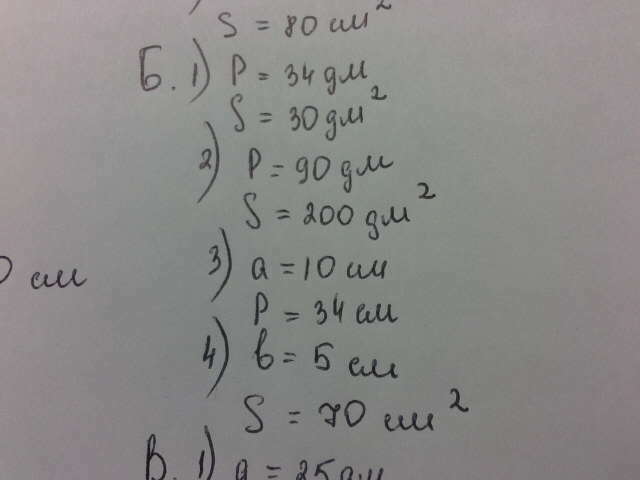 S = 80 см²
Б. 1) P = 34 дм
S = 30 дм²
2) P = 90 дм
S = 200 дм²
3) a = 10 см
0 см
P = 34 см
4) в = 5 см
S = 70 см²
В. 1) a = 25 дм